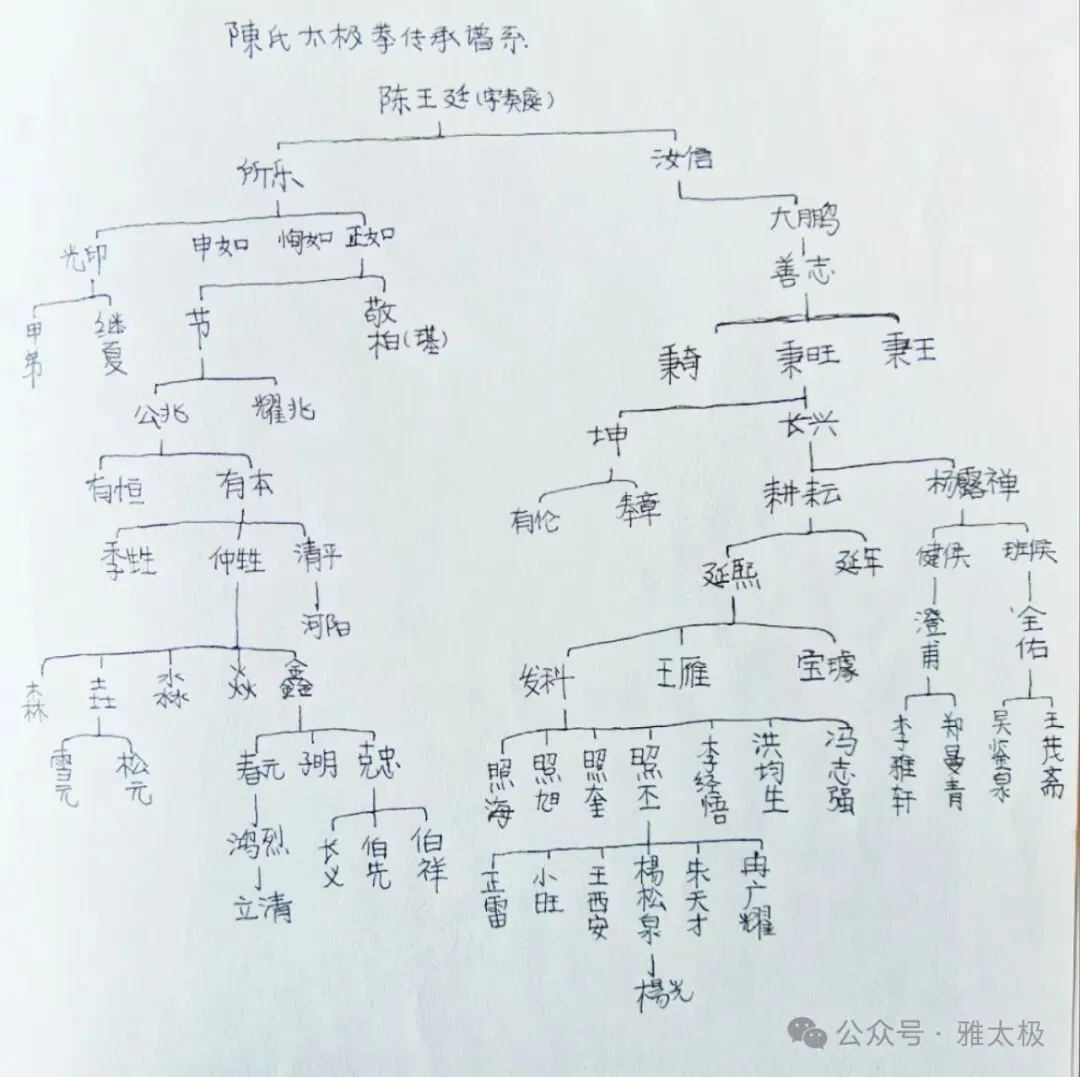 陳氏太极拳传承谱系
陈王廷(字奏庭)
所乐
汝信
大鹏
光印
申如
恂如
正如
善志
甲第
继夏
节
敬柏(基)
秉奇
秉旺
秉王
公兆
耀兆
坤
长兴
有恒
有本
有伦
奉章
耕耘
杨露禅
季甡
仲甡
清平
延熙
延年
健侯
班侯
河阳
澄甫
全佑
森
垚
淼
焱
鑫
发科
王雁
宝璩
雪元
松元
春元
子明
克忠
照海
照旭
照奎
照丕
李经悟
洪均生
冯志强
李雅轩
郑曼青
吴鉴泉
王茂斋
鸿烈
长义
伯先
伯祥
立清
正雷
小旺
王西安
楊松泉
朱天才
冉广耀
楊光
公众号·雅太极